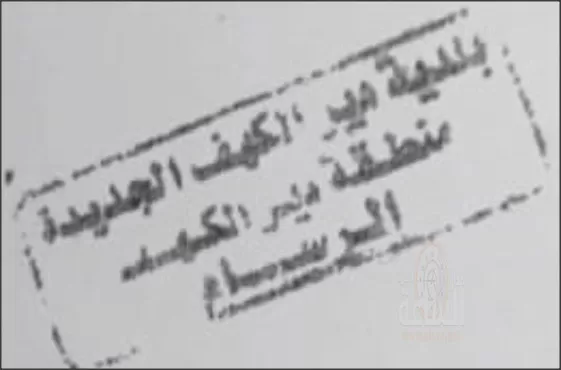 بلدية دير الكهف الجديدة
منطقة دير الكهف
الر